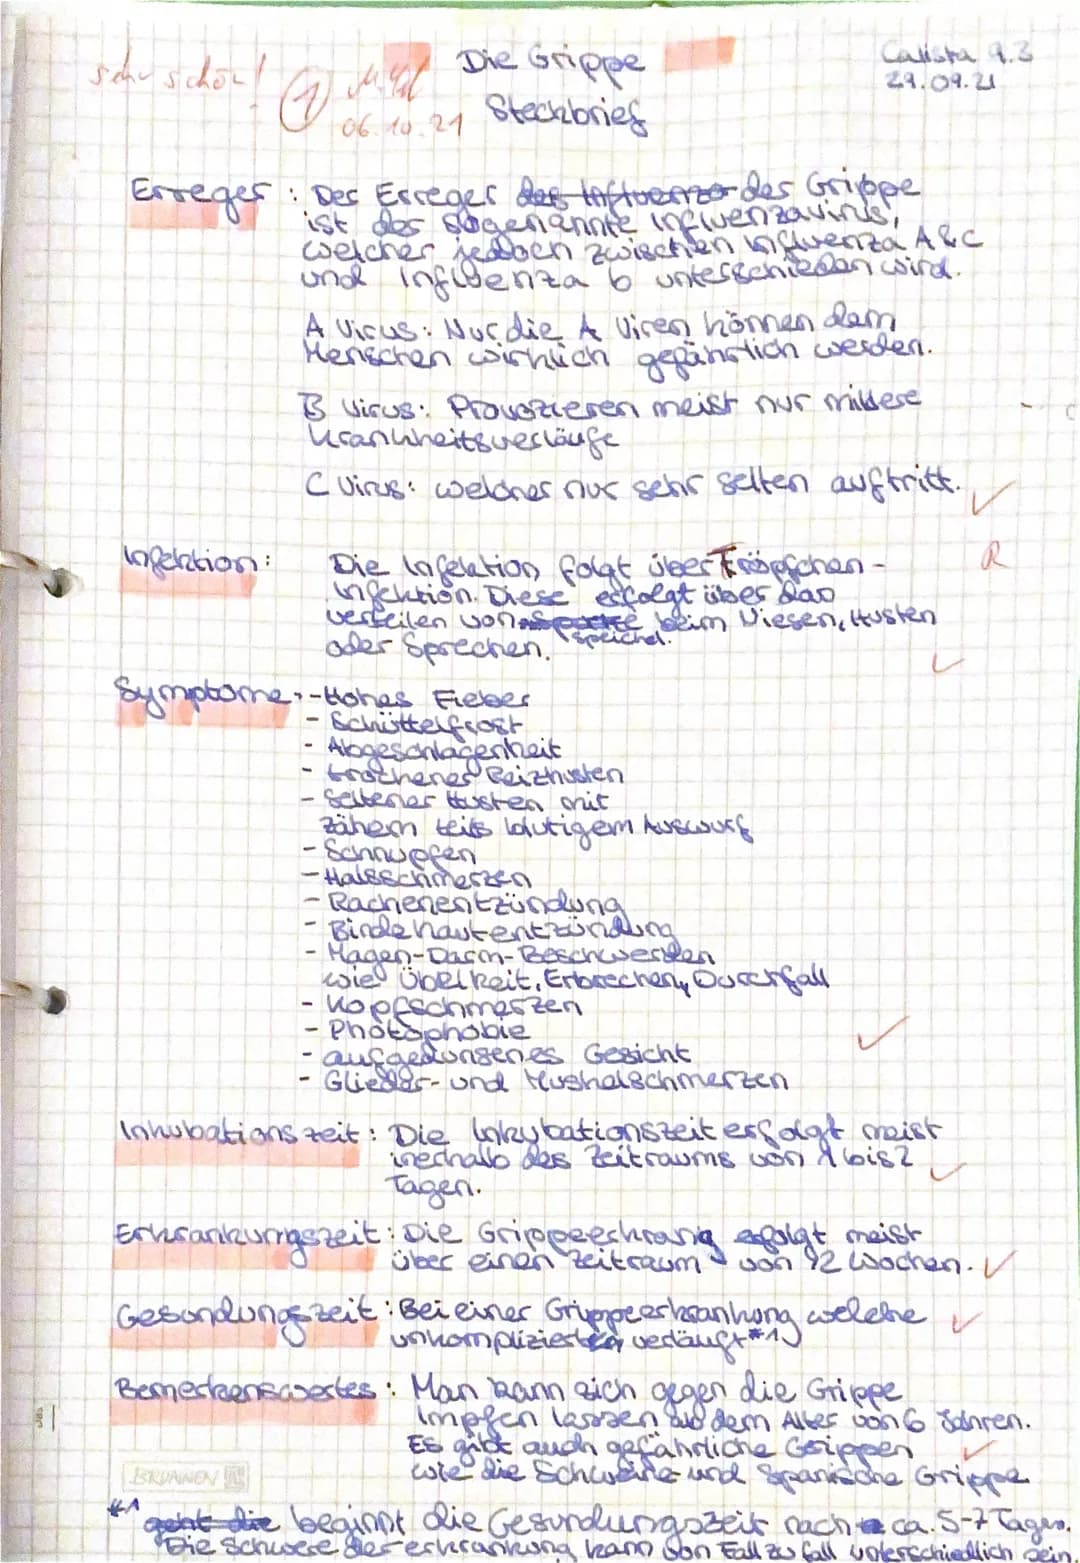 Die Grippe
Steckbrief
Calista 9.3
29.09.21
sehr schön!
1
06.10.21
Erreger : Der Erreger der Influenza der Grippe
ist das sogenannte Influenzavirus,
welcher jedoch zwischen Influenza A & C
und Influenza b unterschieden wird.
A Virus: Nur die A Viren können dem
Menschen wirklich gefährlich werden.
B Virus: Provozieren meist nur mildere
Krankheitsverläufe
C Virus: welcher nur sehr selten auftritt.
Infektion: Die Infektion folgt über Tröpfchen-
R
infektion. Diese erfolgt über das
verteilen von Speichel beim Niesen, Husten
oder Sprechen.
Symptome: - Hohes Fieber
- Schüttelfrost
- Abgeschlagenheit
- trockener Reizhusten
- Seltener Husten mit
zähem teils blutigem Auswurf
- Schnupfen
- Halsschmerzen
- Rachenentzündung
- Bindehautentzündung
- Magen-Darm-Beschwerden
wie Übelkeit, Erbrechen, Durchfall
- Kopfschmerzen
- Photophobie
- aufgedunsenes Gesicht
- Glieder- und Muskelschmerzen
Inkubationszeit: Die Inkubationszeit erfolgt meist
inerhalb des Zeitraums von 1 bis 2
Tagen.
Erkrankungszeit: Die Grippeerkrang erfolgt meist
über einen Zeitraum von 12 Wochen.
Gesundungszeit: Bei einer Grippeerkrankung welche
unkompliziert verläuft *1
Bemerkenswertes: Man kann sich gegen die Grippe
Impfen lassen ab dem Alter von 6 Jahren.
Es gibt auch gefährliche Grippen
wie die Schweine und Spanische Grippe
BRUNNEN
*1 geht die beginnt die Gesundungszeit nach ca. 5-7 Tagen.
Die Schwere der erkrankung kann von Fall zu fall unterschiedlich sein